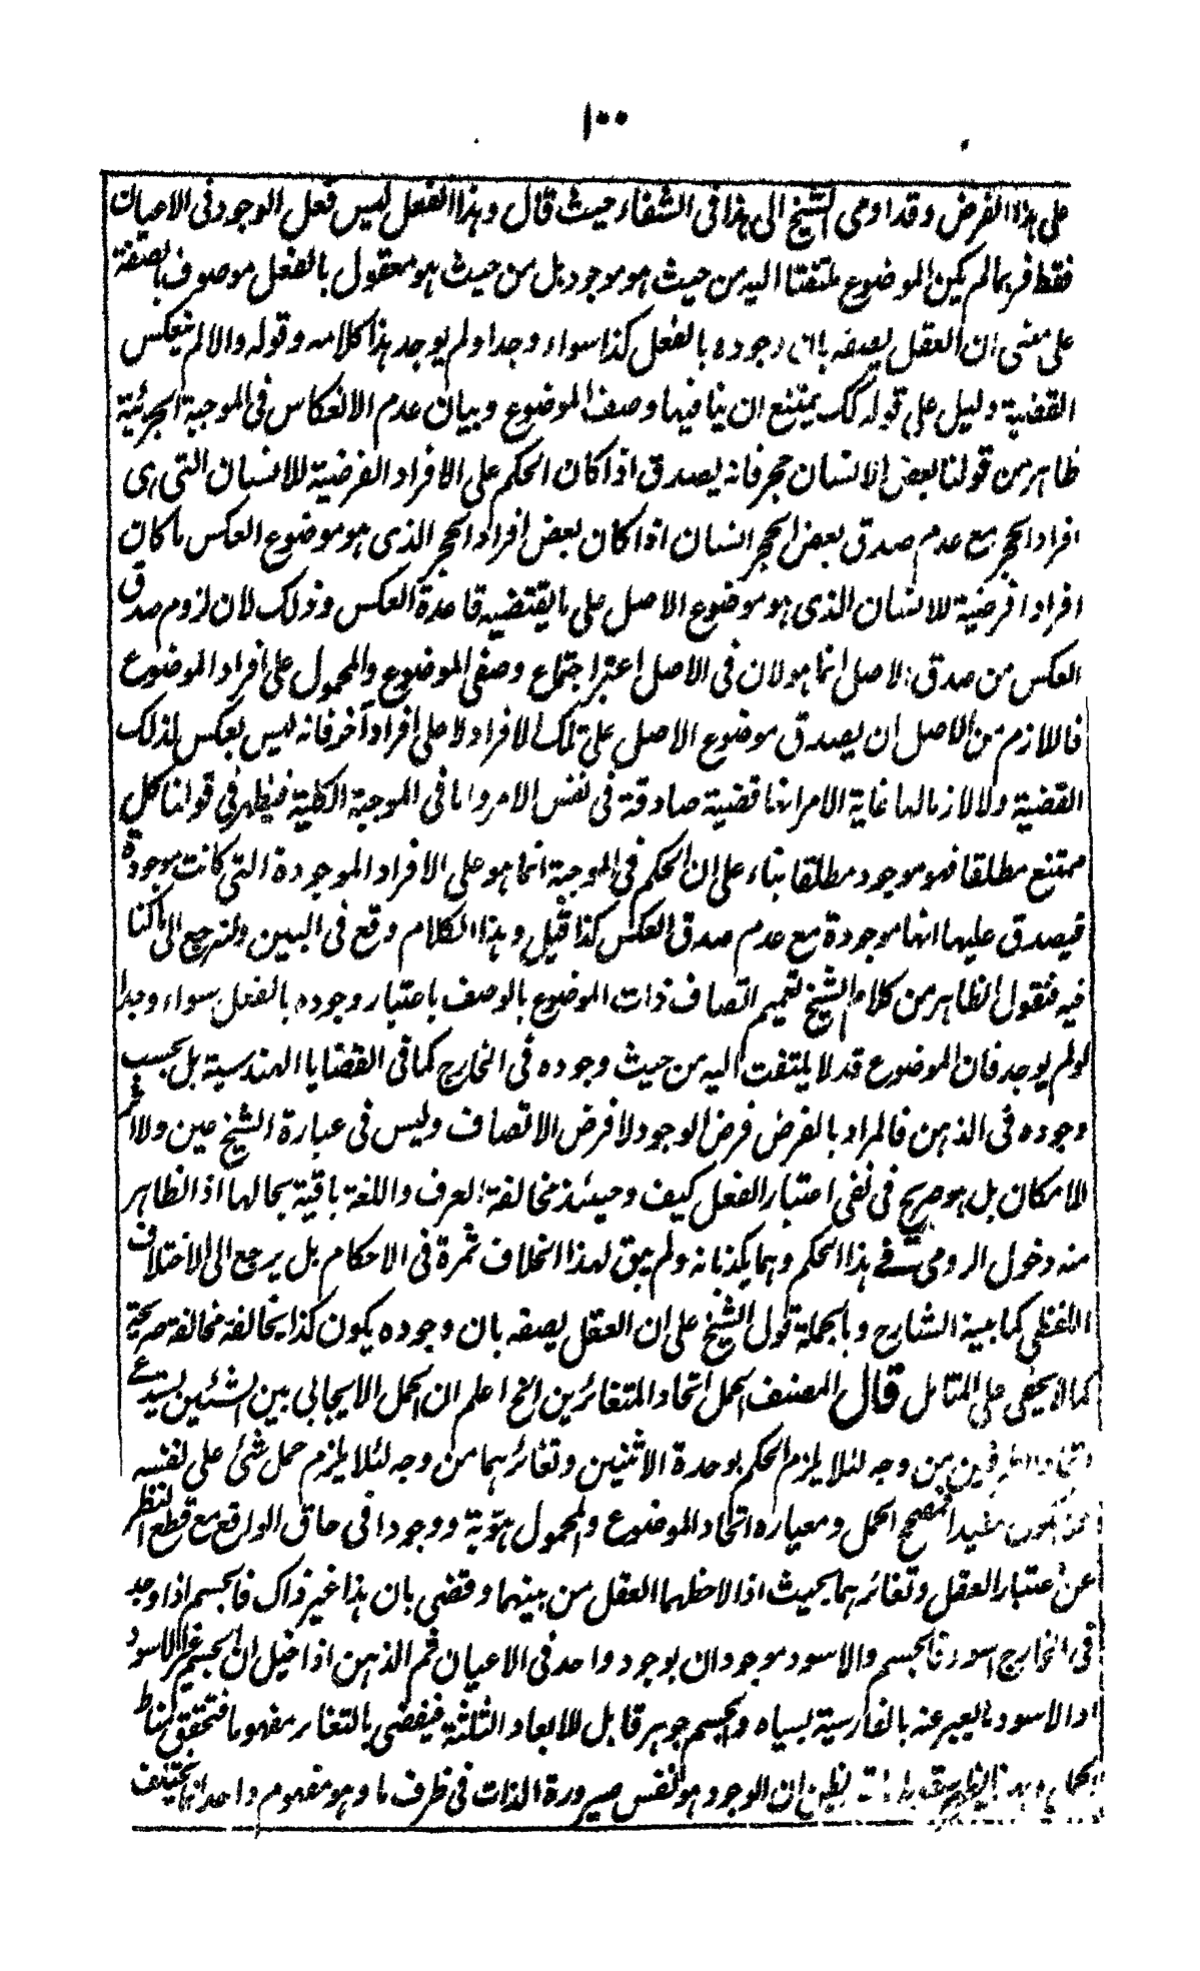 ١٠٠
على هذا الفرض وقد اومى الشيخ الى هذا فى الشفاء حيث قال وهذا الفعل ليس فعل الوجود فى الاعيان
فقط فربما لم يكن الموضوع ملتفتا اليه من حيث هو موجود بل من حيث هو معقول بالفعل موصوف بالصفة
على معنى ان العقل يصفه بان وجوده بالفعل كذا سواء وجد او لم يوجد هذا كلامه وقوله والا لم ينعكس
القضية دليل على قوله كك يمتنع ان ينافيها وصف الموضوع وبيان عدم الانعكاس فى الموجبة الجزئية
ظاهر من قولنا بعض الانسان حجر فانه يصدق اذا كان الحكم على الافراد الفرضية للانسان التى هى
افراد الحجر مع عدم صدق بعض الحجر انسان اذا كان بعض افراد الحجر الذى هو موضوع العكس ما كان
افرادا فرضية للانسان الذى هو موضوع الاصل على ما يقتضيه قاعدة العكس وذلك لان لزوم صدق
العكس من صدق الاصل انما هو لان فى الاصل اعتبر اجتماع وصفى الموضوع والمحمول على افراد الموضوع
فاللازم من الاصل ان يصدق موضوع الاصل على تلك الافراد لا على افراد آخر فانه ليس بعكس لذلك
القضية ولا لازما لها غاية الامر انها قضية صادقة فى نفس الامر واما فى الموجبة الكلية فيظهر فى قولنا كل
ممتنع مطلقا فهو موجود مطلقا بناء على ان الحكم فى الموجبة انما هو على الافراد الموجودة التى كانت موجودة
فيصدق عليها انها موجودة مع عدم صدق العكس كذا قيل وهذا الكلام وقع فى البين ولنرجع الى ما كنا
فيه فنقول الظاهر من كلام الشيخ تعميم اتصاف ذات الموضوع بالوصف باعتبار وجوده بالفعل سواء وجد
او لم يوجد فان الموضوع قد لا يلتفت اليه من حيث وجوده فى الخارج كما فى القضايا الهندسية بل بحسب
وجوده فى الذهن فالمراد بالفرض فرض الوجود لا فرض الاتصاف وليس فى عبارة الشيخ عين ولا اثر
الامكان بل هو صريح فى نفى اعتبار الفعل كيف وحينئذ مخالفة العرف واللغة باقية بحالها اذ الظاهر
منه دخول الرومى فى هذا الحكم وهما يكذبانه ولم يبق لهذا الخلاف ثمرة فى الاحكام بل يرجع الى الاختلاف
اللفظى كما بينه الشارح وبالجملة قول الشيخ على ان العقل يصفه بان وجوده يكون كذا يخالفه مخالفة صريحة
كما لا يخفى على المتامل قال المصنف الحمل اتحاد المتغائرين الخ اعلم ان الحمل الايجابى بين الشئين يستدعى
اتحاد الطرفين من وجه لئلا يلزم الحكم بوحدة الاثنين وتغائرهما من وجه لئلا يلزم حمل شئ على نفسه
يكون مفيدا فمصحح الحمل ومعياره اتحاد الموضوع والمحمول هوية ووجودا فى حاق الواقع مع قطع النظر
عن اعتبار العقل وتغائرهما بحيث اذا لاحظهما العقل من بينهما وقضى بان هذا غير ذاك فالجسم اذا وجد
فى الخارج اسود فالجسم والاسود موجودان بوجود واحد فى الاعيان ثم الذهن اذا خيل ان الجسم غير الاسود
اذ الاسود ما يعبر عنه بالفارسية بسياه والجسم جوهر قابل للابعاد الثلثة فيقضى بالتغائر مفهوما فتحقق مناط
يظهر ان الوجود هو نفس صيرورة الذات فى ظرف ما وهو مفهوم واحد انما يختلف